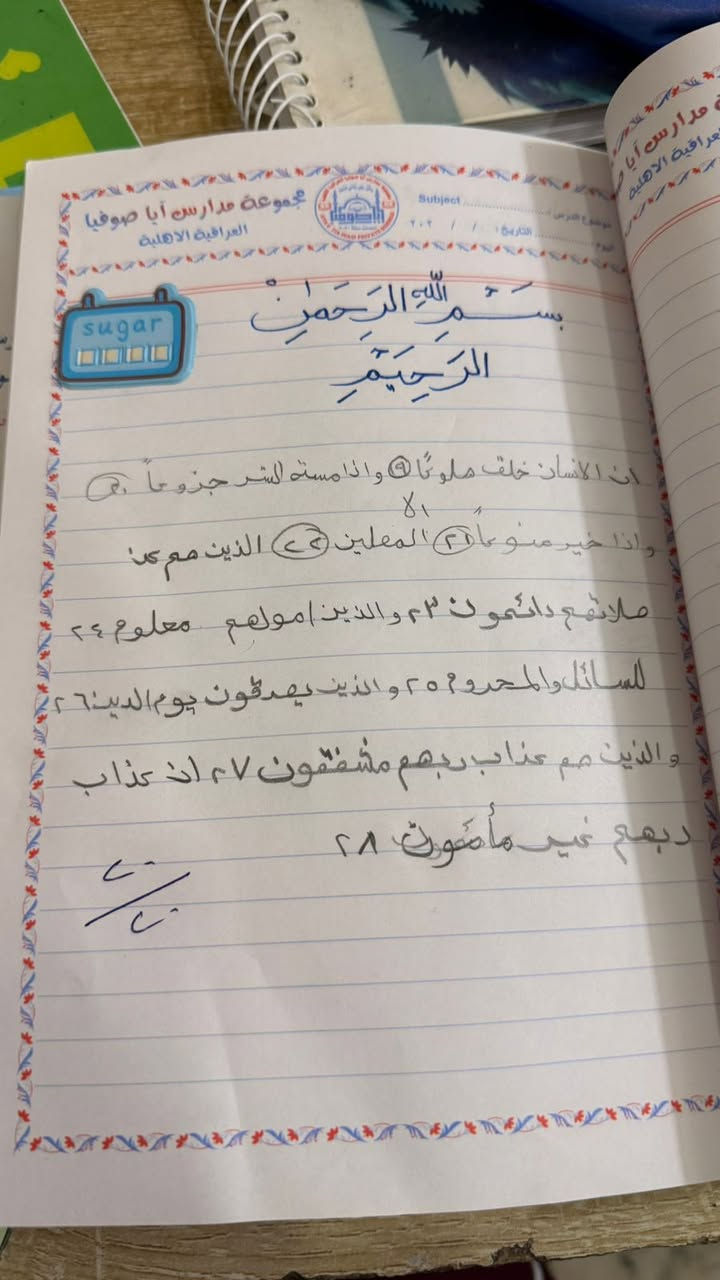 مجموعة مدارس آيا صوفيا
العراقية الاهلية
Subject
موضوع الدرس:
التاريخ: / / ٢٠٢
اليوم:
sugar
بِسْمِ اللهِ الرَحَمٰنْ
الرَحِيمِ
ان الانسان خلق هلوعًا ١٩ واذا مسته الشر جزوعاً ٢٠
الا
واذا خير منوعاً ٢١ المعلين ٢٢ الذين هم عن
صلاتهم دائمون ٢٣ والذين امولهم معلوم ٢٤
للسائل والمحروم ٢٥ والذين يصدقون يوم الدين ٢٦
والذين هم عذاب ربهم مشفقون ٢٧ ان عذاب
ربهم غير مأمون ٢٨
٢٠
٢٠
مدارس آيا صو
العراقية الاهلية